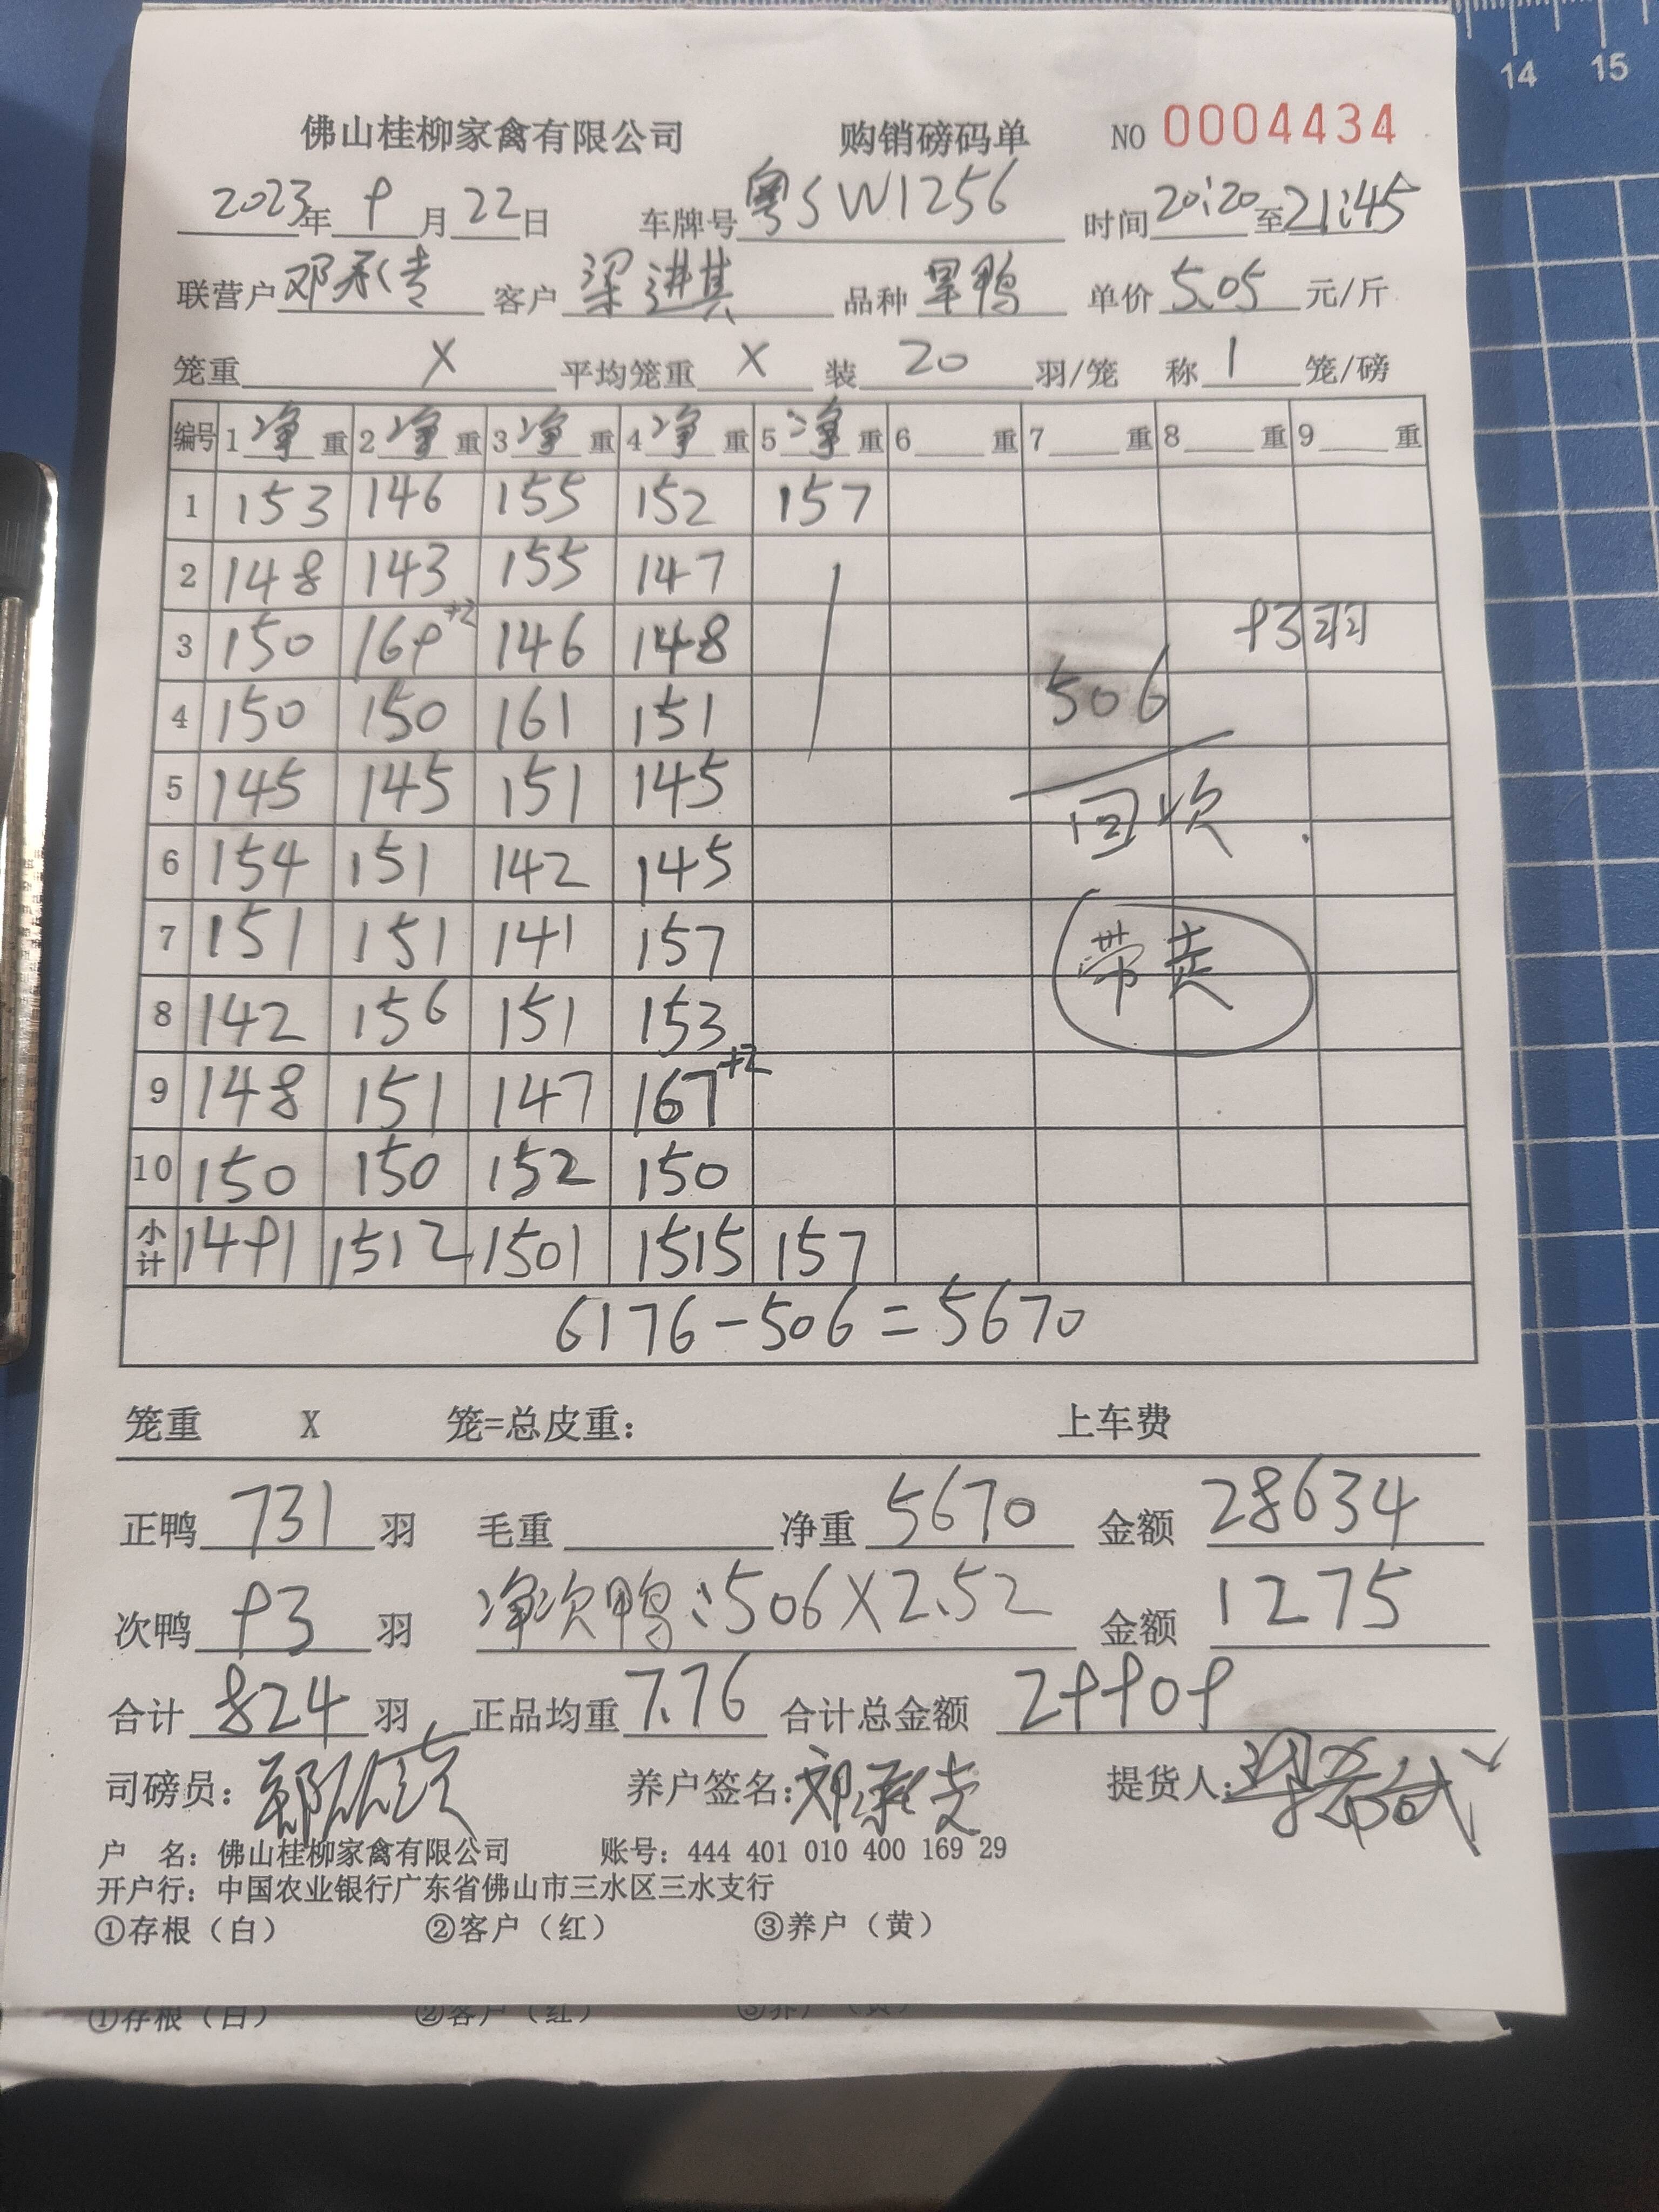 14 15
佛山桂柳家禽有限公司 购销磅码单 NO 0004434
2023年 9月22日 车牌号粤SW1256 时间20:20至21:45
联营户邓承志 客户 梁进其 品种 旱鸭 单价 5.05 元/斤
笼重 X 平均笼重 X 装 20 羽/笼 称 1 笼/磅
编号 1 净 重 2 净 重 3 净 重 4 净 重 5 净 重 6 重 7 重 8 重 9 重
1 153 146 155 152 157
2 148 143 155 147
3 150 169+2 146 148 93羽
4 150 150 161 151 506
5 145 145 151 145 回次
6 154 151 142 145
7 151 151 141 157 带走
8 142 156 151 153
9 148 151 147 167+2
10 150 150 152 150
小计 1491 1512 1501 1515 157
6176-506=5670
笼重 X 笼=总皮重: 上车费
正鸭 731 羽 毛重 净重 5670 金额 28634
次鸭 93 羽 净次鸭:506X2.52 金额 1275
合计 824 羽 正品均重 7.76 合计总金额 29909
司磅员: 养户签名: 提货人:
户 名: 佛山桂柳家禽有限公司 账号: 444 401 010 400 169 29
开户行: 中国农业银行广东省佛山市三水区三水支行
①存根（白） ②客户（红） ③养户（黄）
①存根（白） ②客户（红） ③养户（黄）